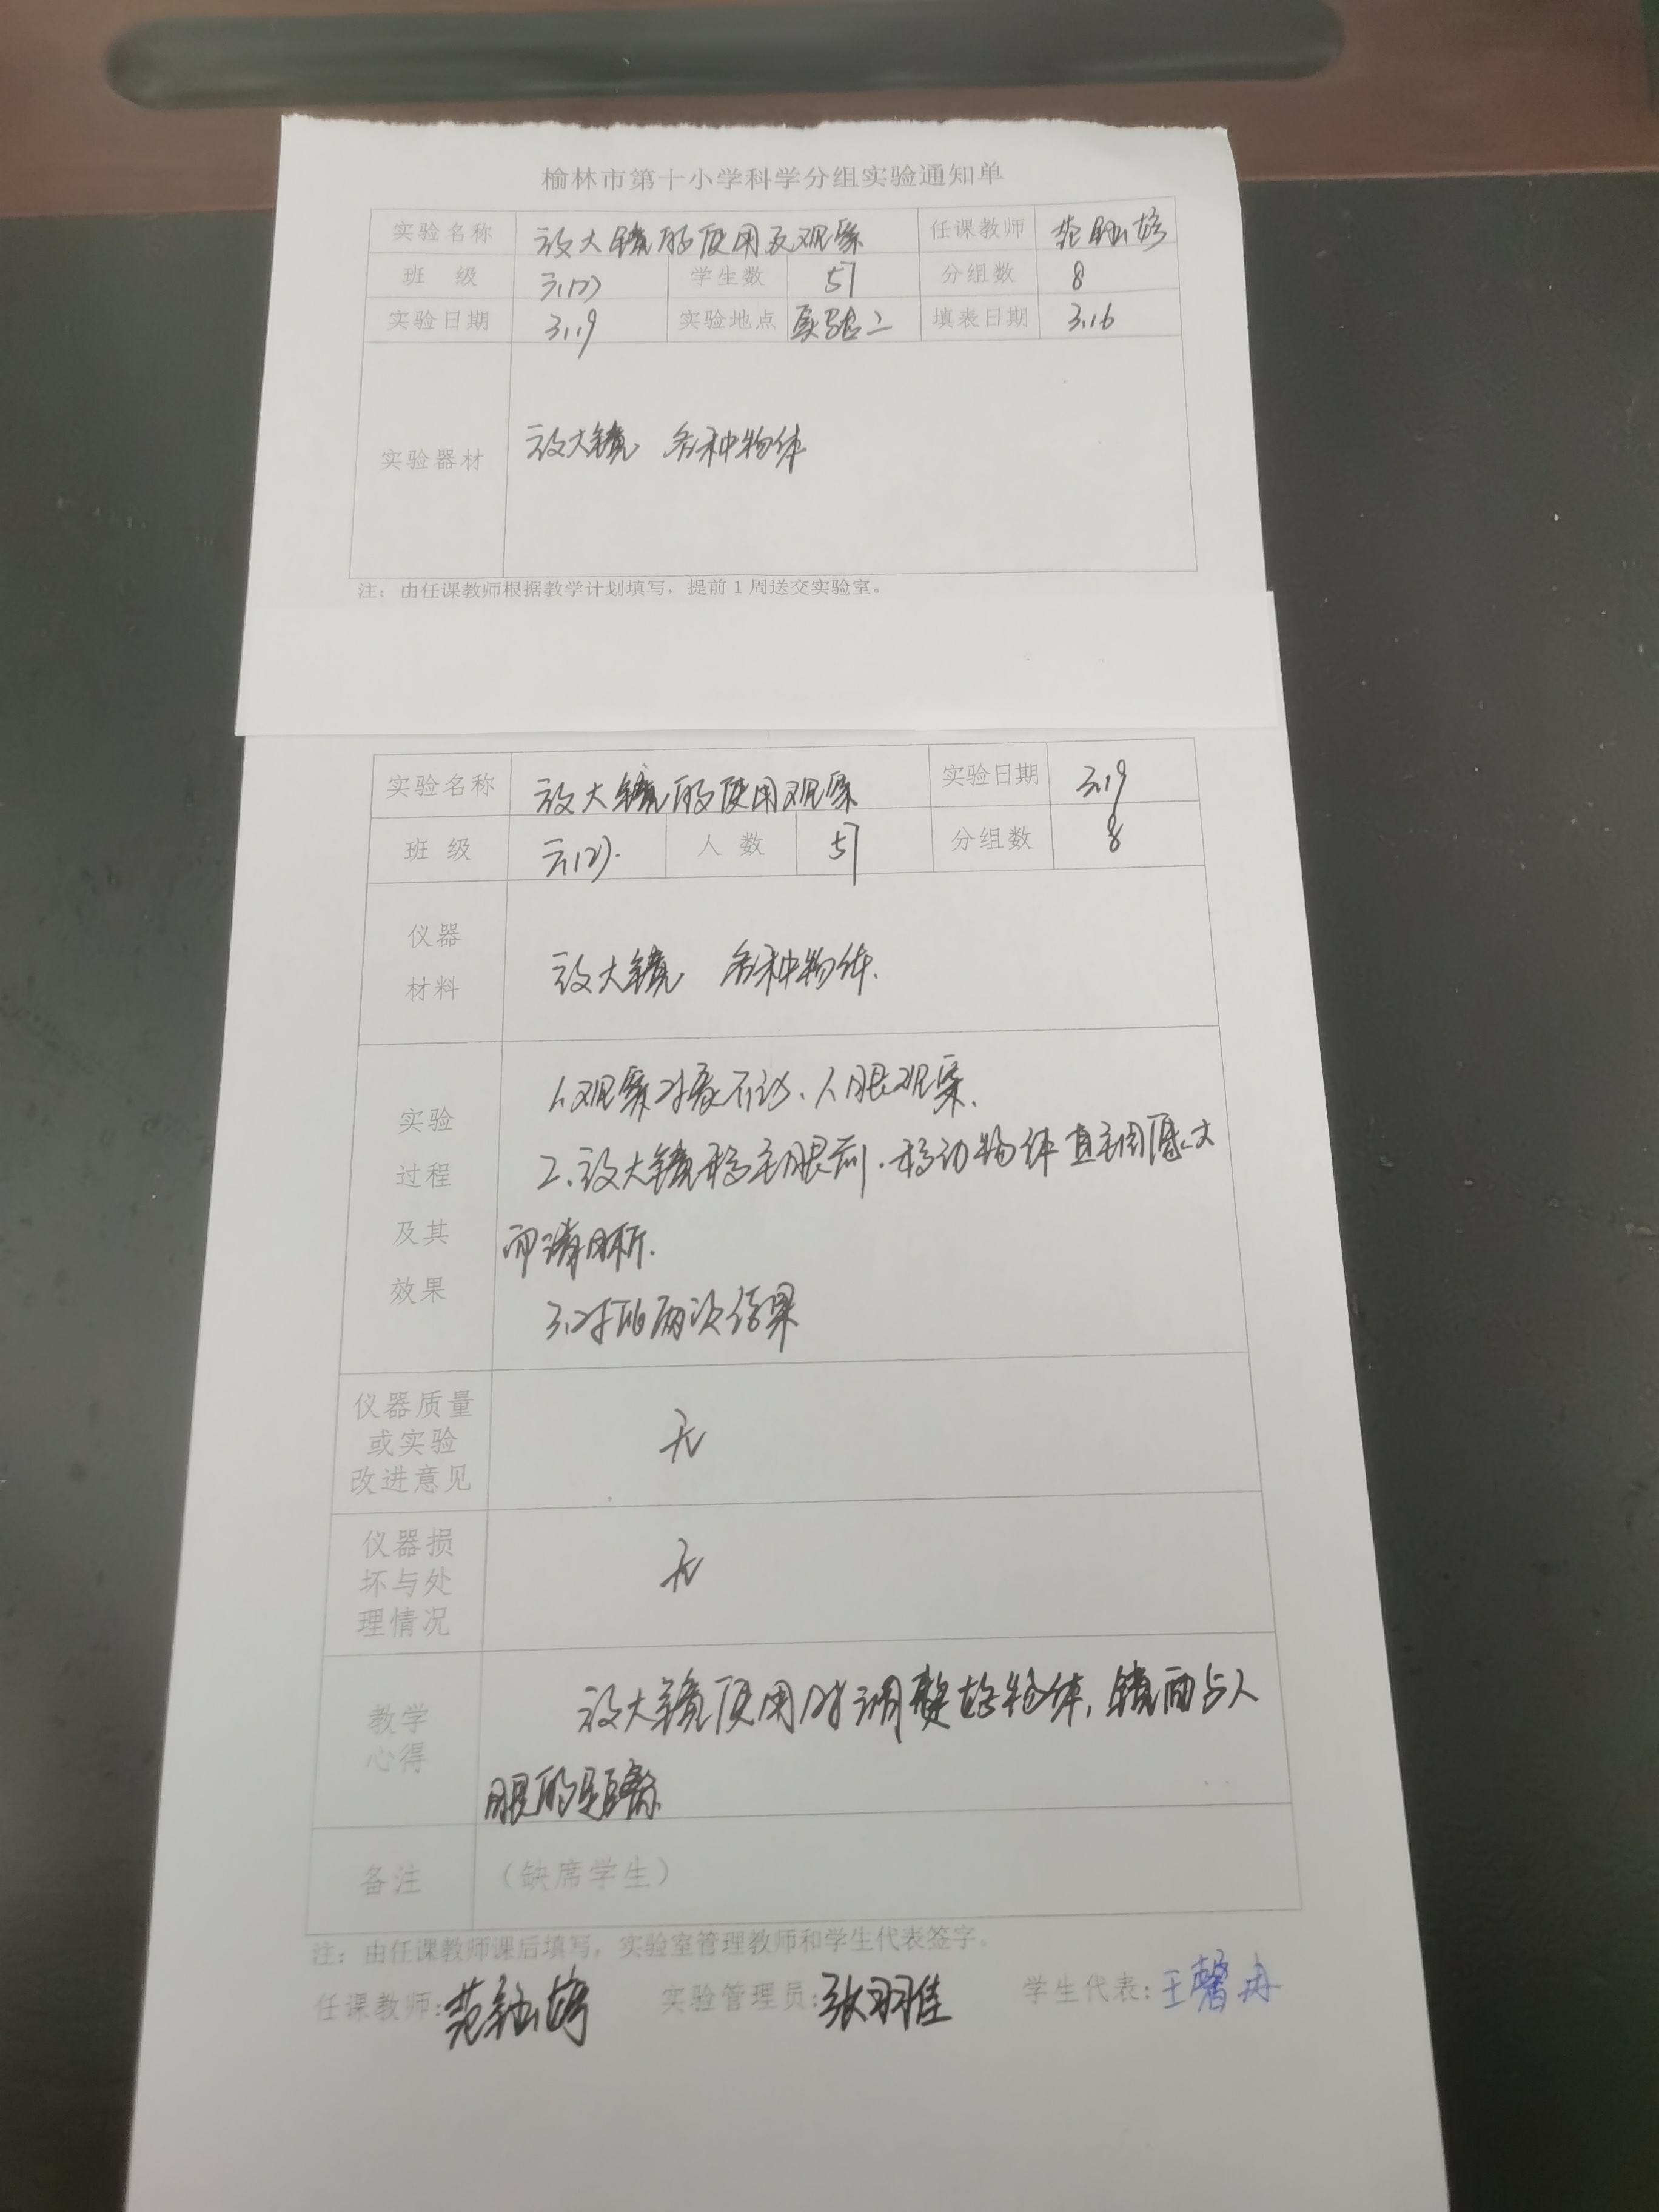 榆林市第十小学科学分组实验通知单
实验名称 放大镜的使用及观察 任课教师 范
班 级 三(2) 学生数 57 分组数 8
实验日期 3.19 实验地点 实验二 填表日期 3.16
实验器材 放大镜、各种物体
注：由任课教师根据教学计划填写，提前1周送交实验室。
实验名称 放大镜的使用观察 实验日期 3.19
班 级 三(2). 人 数 57 分组数 8
仪器
材料
放大镜、各种物体.
实验
过程
及其
效果
1.观察对象不动、人眼观察.
2.放大镜移至眼前.移动物体直至图像大
而清晰.
3.对比两次结果
仪器质量
或实验
改进意见
无
仪器损
坏与处
理情况
无
教学
心得
放大镜使用时调整好物体，镜面与人
眼的距离
备注 （缺席学生）
注：由任课教师课后填写，实验室管理教师和学生代表签字。
任课教师：范 实验管理员：张羽佳 学生代表：王馨冉